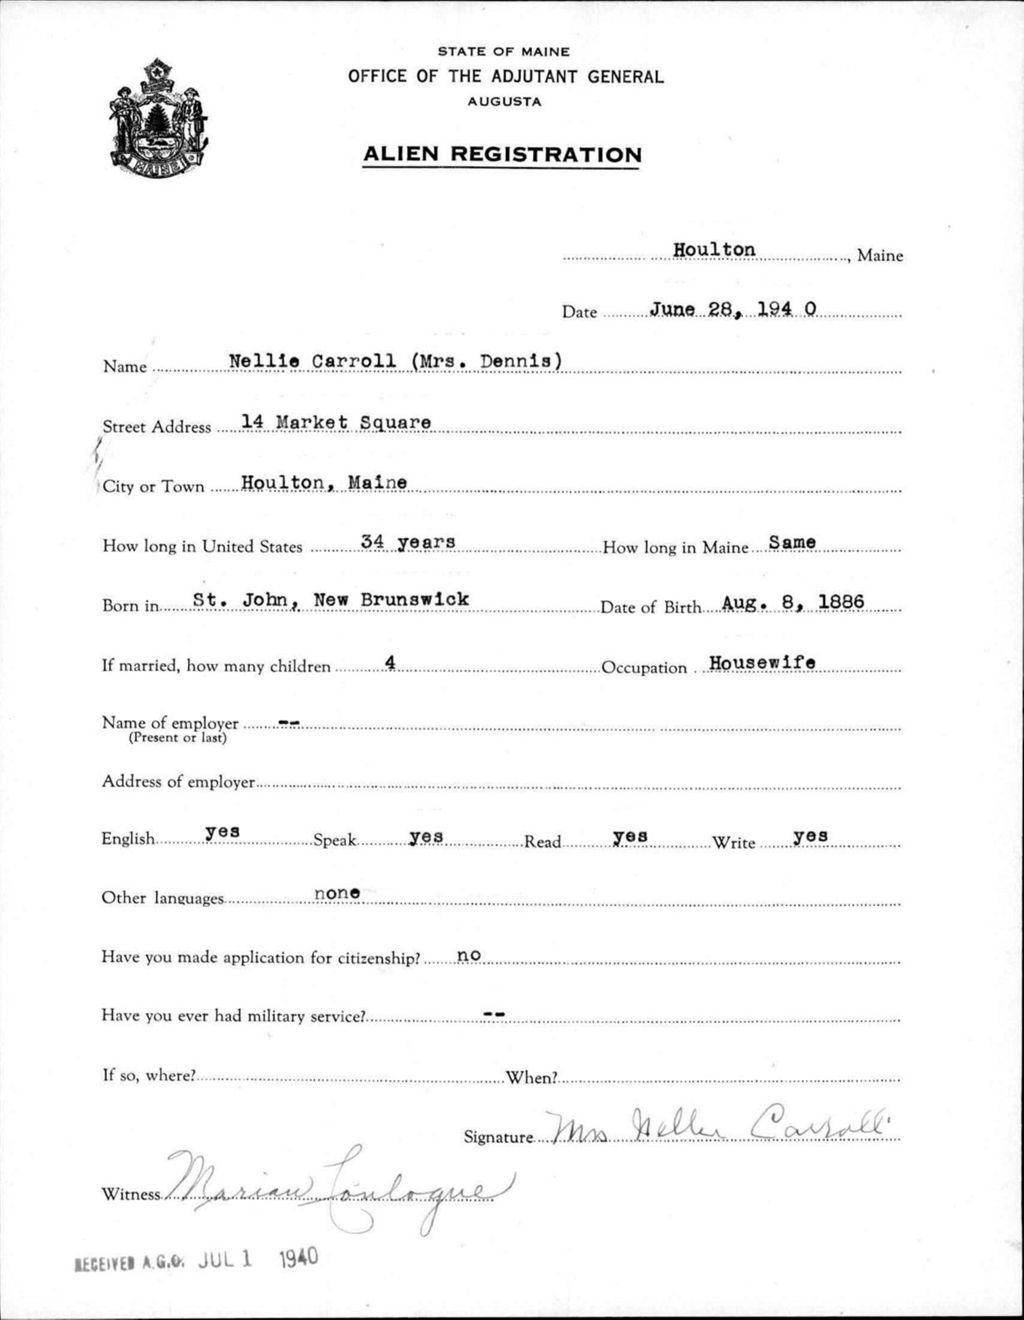 STATE OF MAINE
OFFICE OF THE ADJUTANT GENERAL
AUGUSTA
ALIEN REGISTRATION
MAINE
Houlton, Maine
Date June 28, 194 0
Name Nellie Carroll (Mrs. Dennis)
Street Address 14 Market Square
City or Town Houlton, Maine
How long in United States 34 years How long in Maine Same
Born in St. John, New Brunswick Date of Birth Aug. 8, 1886
If married, how many children 4 Occupation Housewife
Name of employer --
(Present or last)
Address of employer
English yes Speak yes Read yes Write yes
Other languages none
Have you made application for citizenship? no
Have you ever had military service? --
If so, where? When?
Signature Mrs Nellie Carroll
Witness Marian Conlogue
RECEIVED A.G.O. JUL 1 1940